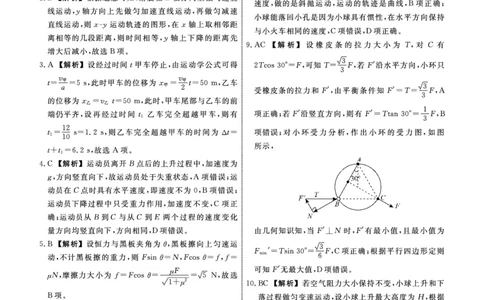 直线运动,y轴方向上先做匀加速直线运动,再做匀减速
直线运动,则x-y运动轨迹的图形,在x轴上取相邻等距
离相等的几段距离,则时间相等,y轴上下降的距离先
增大后减小,故选B项。
3.A 【解析】设经过时间t甲车停止,由运动学公式可得
t=v甲/a=5 s,此时甲车的位移为x甲=v甲/2 t=50 m,乙车
的位移为x乙=v乙t=50 m,此时,甲车尾部与乙车的前
端仍平齐,设再经过时间t₁乙车完全超越甲车,则有
t₁=12/10 s=1.2 s,则乙车完全超越甲车的时间为Δt=
t+t₁=6.2 s,故选A项。
4.C 【解析】运动员离开B点后的上升过程中,加速度为
g,方向竖直向下,故运动员处于失重状态,A项错误;运
动员在C点时具有水平速度,即速度不为0,B项错误;
运动员下降过程中只受重力作用,加速度不变,C项正
确;运动员从B到C与从C到F两个过程的速度变化
量方向均竖直向下,方向相同,D项错误。
5.B 【解析】设恒力与黑板夹角为θ,黑板擦向上匀速运
动,不计黑板擦的重力,则Fsin θ=N,Fcos θ=f,f=
μN,摩擦力大小为f=Fcos θ=μF/√(1+μ²)=√5 N,故选
B项。
速度,做的是斜抛运动,运动的轨迹是曲线,B项正确;
小球能落回小孔是因为小球具有惯性,在水平方向保持
与小火车相同的速度,C项错误,D项正确。
9.AC 【解析】设橡皮条的拉力大小为T,对C有
2Tcos 30°=F,可知T=√3/3 F,若F′沿水平方向,小环只
受橡皮条的拉力和F′,由平衡条件知F′=T=√3/3 F,A
项正确;若F′沿竖直方向,则有F′=Ttan 30°=1/3 F,B
项错误;对小环受力分析,作出小环的受力图,如图
所示,
A
30°
F′
T
B
C
N
F
由几何知识知,当F′⊥N时,F′有最小值,且最小值为
Fmin′=Tsin 30°=√3/6 F,C项正确;根据平行四边形定则
可知F′无最大值,D项错误。
10.BC 【解析】若空气阻力大小保持不变,小球上升和下
落过程做匀变速运动,设小球上升最大高度为H,根据